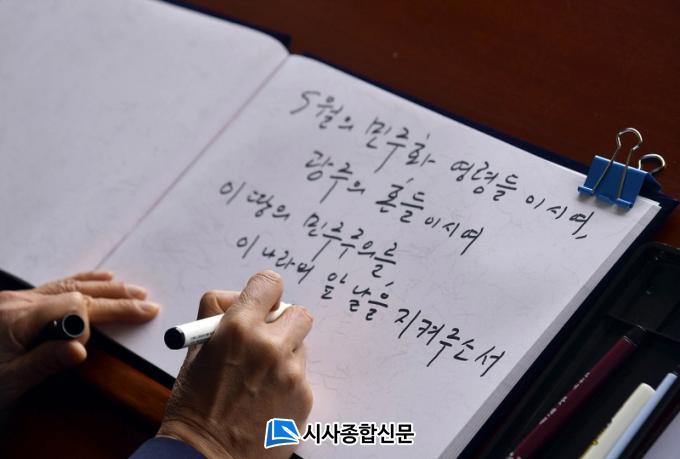 5월의 민주화 영령들이시여,
광주의 혼들이시여
이 땅의 민주주의를,
이 나라의 앞날을 지켜주소서
시사종합신문